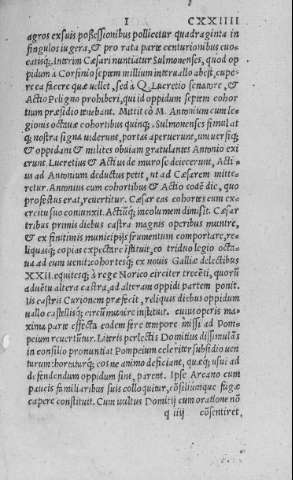 I CXXIIII
agros exsuis possessionibus pollicetur quadraginta in
singulos iugera, & pro rata parte centurionibus euo-
catisq;. Interim Cæsari nuntiatur Sulmonenses, quod op
pidum a Corfinio septem millium interuallo abest, cupe-
re ea facere quæ uellet, sed à Q. Lucretio senatore, &
Actio Peligno prohiberi, qui id oppidum septem cohor
tium præsidio tenebant. Mittit eò M. Antonium cum le-
gionis octauæ cohortibus quinq;. Sulmonenses simul at
q; nostra signa uiderunt, portas aperuerunt, uniuersiq;
& oppidani & milites obuiam gratulantes Antonio exi
erunt. Lucretius & Actius de muro se deiecerunt, Acti-
us ad Antonium deductus petit, ut ad Cæsarem mitte-
retur. Antonius cum cohortibus & Actio codẽ dic, quo
profectus erat, reuertitur. Cæsar eas cohortes cum ex-
ercitu suo coniunxit. Actiũq; incolumem dimisit. Cæsar
tribus primis diebus castra magnis operibus munire,
& ex finitimis municipijs frumentum comportare, re-
liquasq; copias expectare istituit, eo triduo legio octa-
ua ad eum uenit: cohortesq; ex nouis Galliæ delectibus
XXII. equitesq; à rege Norico circiter trecẽti, quorũ
aduẽtu altera castra, ad alteram oppidi partem ponit.
ijs castris Curionem præfecit, reliquis diebus oppidum
uallo castellisq; circũmunire instituit. cuius operis ma-
xima parte effecta eodem fere tempore missi ad Pom-
peium reuertũtur. Literis perlectis Domitius dissimulãs
in consilio pronuntiat Pompeium celeriter subsidio uen
turum: hortaturq; eos ne animo deficiant, quæq; usui ad
defendendum oppidum sint, parent. Ipse Arcano cum
paucis familiaribus suis colloquitur, cõsiliumque fugæ
capere constituit. Cum uultus Domitij cum oratione nõ
q iiij cõsentiret,